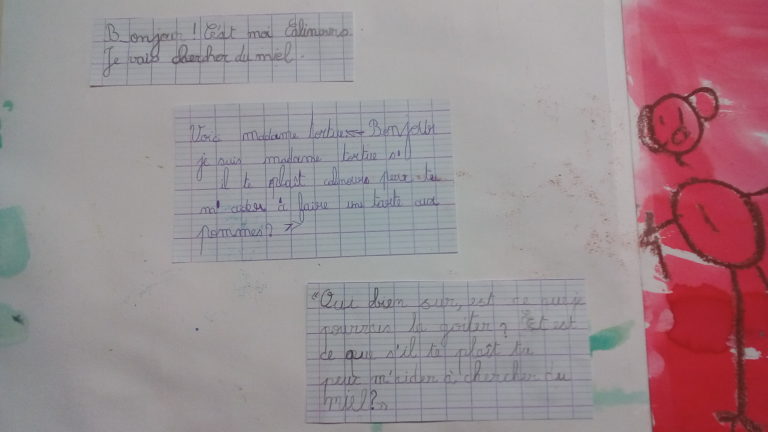 Bonjour ! C'est moi Calinours.
Je vais chercher du miel.
Voici madame tortue Bonjour
je suis madame tortue s'
il te plaît calinours peux-tu
m'aider à faire une tarte aux
pommes? »
"Oui bien sur, est ce que je
pourrais la goûter? Et est
ce que s'il te plaît tu
peux m'aider à chercher du
miel? "